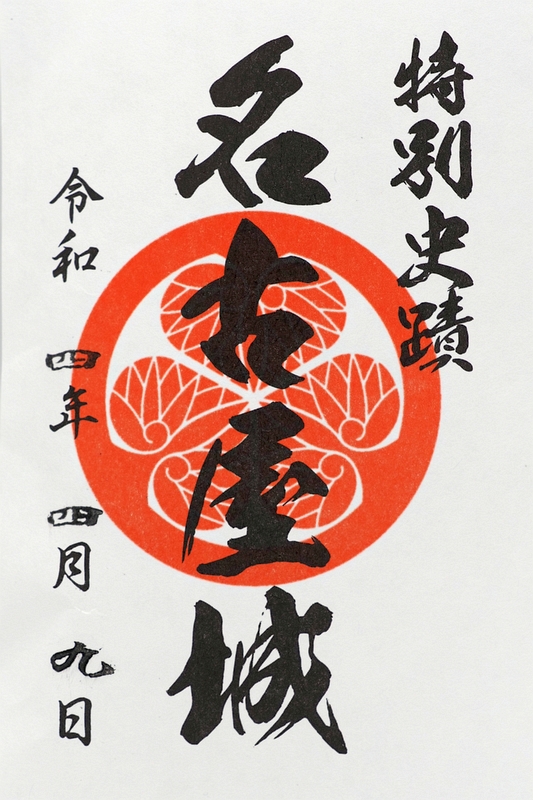 特別史蹟
名古屋城
令和四年四月九日